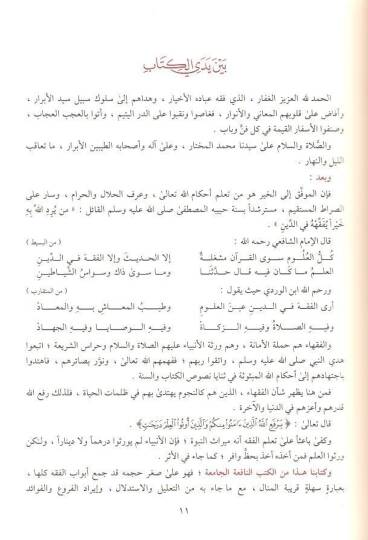 بين يدي الكتاب
الحمد لله العزيز الغفار ، الذي فقه عباده الأخيار ، وهداهم إلى سلوك سبيل سيد الأبرار ،
وأفاض على قلوبهم المعاني والأنوار ، فغاصوا ونقبوا على الدر اليتيم ، وأتوا بالعجب العجاب ،
وصنفوا الأسفار القيمة في كل فنٍّ وباب .
والصَّلاة والسلام على سيدنا محمد المختار ، وعلى آله وأصحابه الطيبين الأبرار ، ما تعاقب
الليل والنهار .
وبعد :
فإن الموفَّق إلى الخير هو من تعلم أحكام الله تعالى ، وعرف الحلال والحرام ، وسار على
الصراط المستقيم ، مسترشداً بسنة حبيبه المصطفى صلى الله عليه وسلم القائل : « من يُرِدِ اللهُ بِهِ
خَيْراً يُفَقِّهْهُ فِي الدِّينِ » .
قال الإمام الشافعي رحمه الله : ( من البسيط )
كلُّ العُلُوم سوى القرآن مشغلة إلا الحديثَ وإلا الفقهَ في الدِّينِ
العلمُ ما كان فيه قال حدَّثَنَا وما سوى ذاك وسواسُ الشَّياطينِ
ورحم الله ابن الوردي حيث يقول : ( من المتقارب )
أرى الفقه في الدين عينَ العلومِ وطيبَ المعاشِ بهِ والمعادْ
وفيهِ الصلاةُ وفيهِ الزكاةُ وفيهِ الوصايا وفيهِ الجهادْ
والفقهاء هم حملة الأمانة ، وهم ورثة الأنبياء عليهم الصلاة والسلام وحراس الشريعة ؛ اتبعوا
هدي النبي صلى الله عليه وسلم ، واتقوا ربهم ؛ ففهمهم الله تعالى ، ونوَّر بصائرهم ، فاهتدوا
باجتهادهم إلى أحكام الله المبثوثة في ثنايا نصوص الكتاب والسنة .
فمن هنا يظهر شأن الفقهاء ، الذين هم كالنجوم يهتدى بهم في ظلمات الحياة ، فلذلك رفع الله
قدرهم وأعزهم في الدنيا والآخرة .
قال تعالى : ﴿ يَرْفَعِ اللَّهُ الَّذِينَ ءَامَنُوا مِنكُمْ وَالَّذِينَ أُوتُوا الْعِلْمَ دَرَجَاتٍ ﴾ .
وكفى باعثاً على تعلم الفقه أنه ميراث النبوة ؛ فإن الأنبياء لم يورثوا درهماً ولا ديناراً ، ولكن
ورثوا العلم فمن أخذه أخذ بحظٍّ وافر ؛ كما جاء في الأثر .
وكتابنا هذا من الكتب النافعة الجامعة ؛ فهو على صغر حجمه قد جمع أبواب الفقه كلها ،
بعبارة سهلةٍ قريبة المنال ، مع ما جاء به من التعليل والاستدلال ، وإيراد الفروع والفوائد
١١